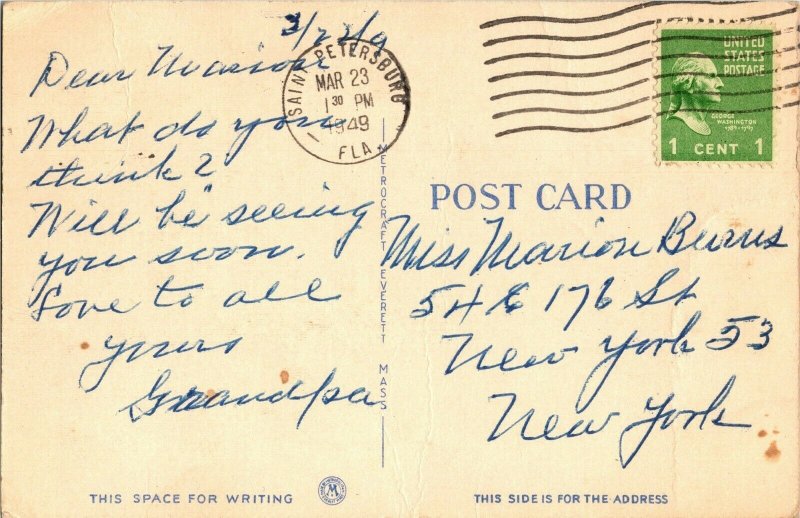 3/22/49
Dear Marion
What do you
think?
Will be seeing
you soon.
Love to all
yours
Grandpa
THIS SPACE FOR WRITING
M
SAINT PETERSBURG
MAR 23
1 30 PM
1949
FLA
METROCRAFT EVERETT MASS
UNITED
STATES
POSTAGE
GEORGE
WASHINGTON
1789-1797
1 CENT 1
POST CARD
Miss Marion Burns
54 E 176 St
New York 53
New York
THIS SIDE IS FOR THE ADDRESS